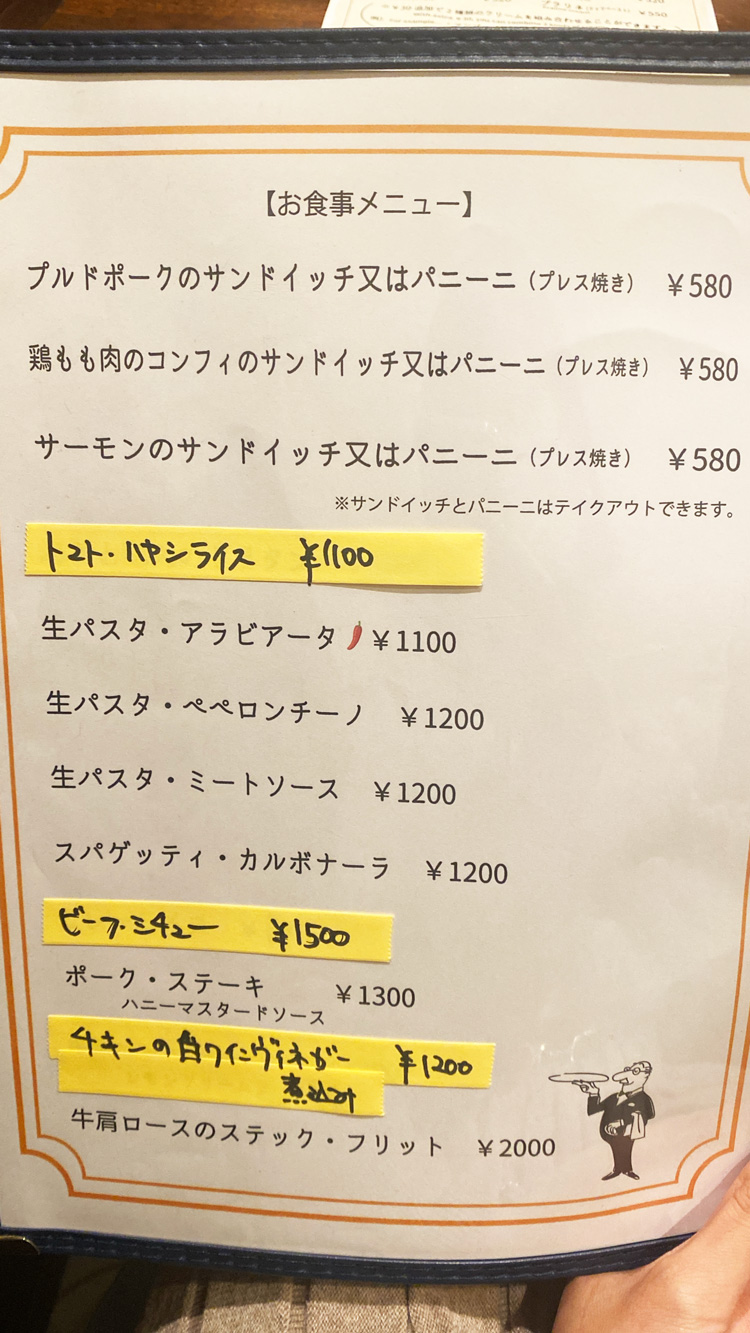 ¥550
【お食事メニュー】
プルドポークのサンドイッチ又はパニーニ（プレス焼き） ¥580
鶏もも肉のコンフィのサンドイッチ又はパニーニ（プレス焼き） ¥580
サーモンのサンドイッチ又はパニーニ（プレス焼き） ¥580
※サンドイッチとパニーニはテイクアウトできます。
トマト・ハヤシライス ¥1100
生パスタ・アラビアータ🌶¥1100
生パスタ・ペペロンチーノ ¥1200
生パスタ・ミートソース ¥1200
スパゲッティ・カルボナーラ ¥1200
ビーフ・シチュー ¥1500
ポーク・ステーキ ¥1300
ハニーマスタードソース
チキンの白ワインヴィネガー ¥1200
煮込み
牛肩ロースのステック・フリット ¥2000